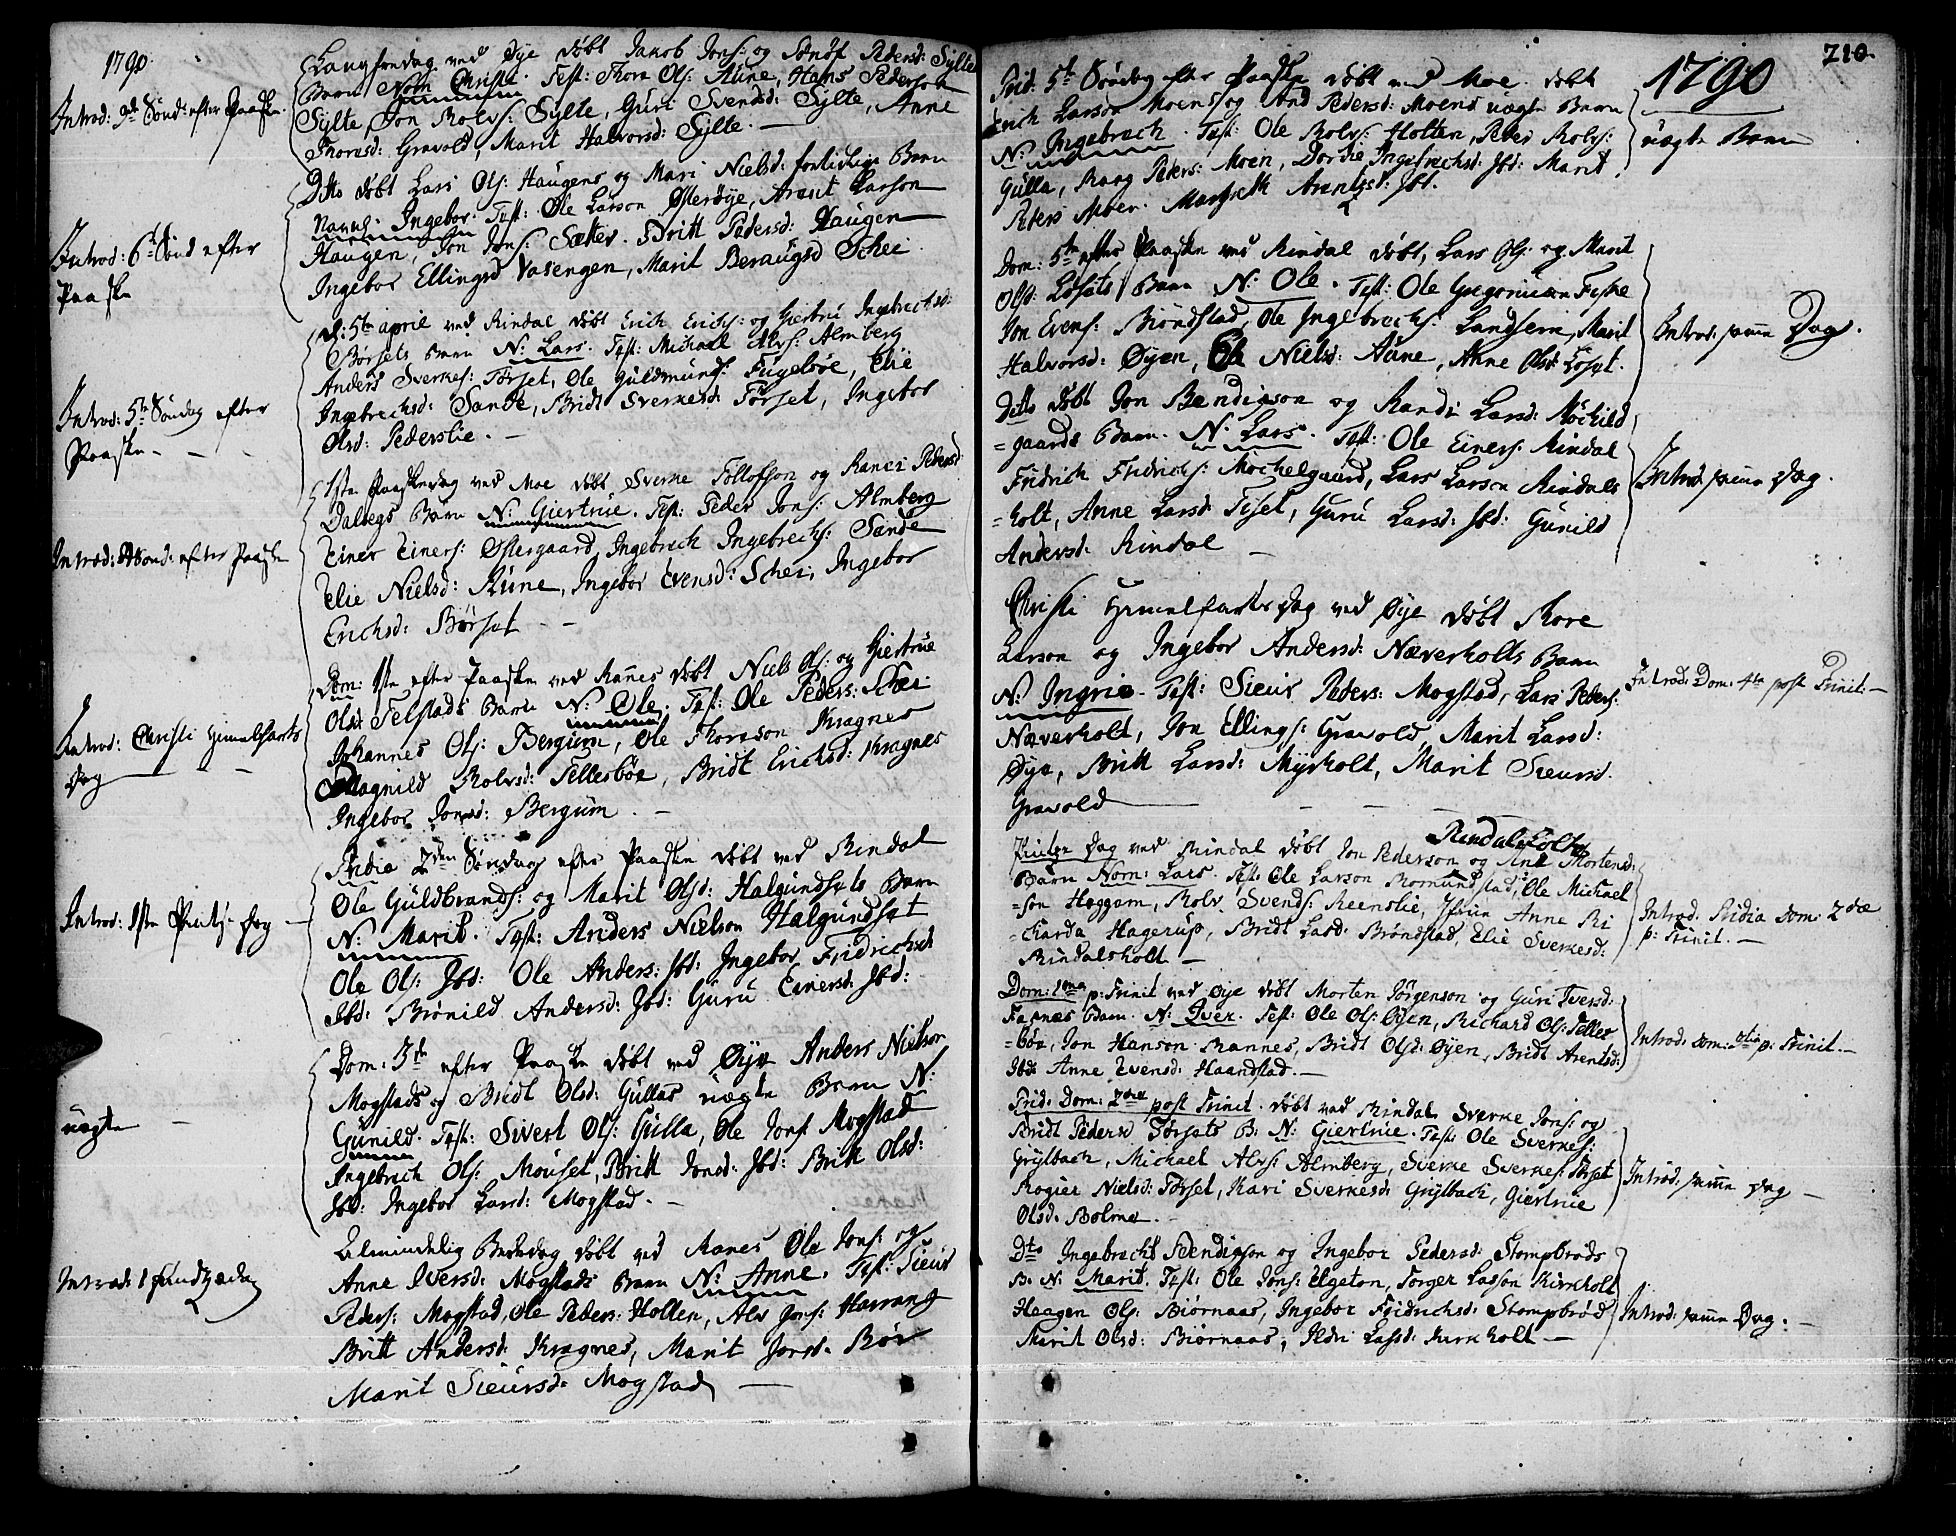 1790.
Introd: 3de Sønd: efter Paaske.
Introd: 6te Sønd efter
Paaske
Introd: 5te Søndag efter
Paaske
Introd: Sønd: efter Paaske
Introd: Christi Himmelfarts
Dag
Introd: 1ste Pintz-Dag
uægte
Introd: 1 Sundhædag
Langfredag ved Øye døbt Jakob Jons: og Peders: Sylte
Barn Nom Christi. Test: Thore Ols: Aune, Hans Pederson
Sylte, Jon Rolvs: Sylte, Guri Svendsd: Sylte, Anne
Thoresd: Gravold, Marit Halvorsd: Sylte.
Dito døbt Lars Ols: Haugens og Mari Nielsd: Barn
Navnl: Ingebor. Test: Ole Larson Østerøye, Arent Larson
Haugen, Jon Jons: Sæther. Britt Pedersd: Haugen
Ingebor Ellingsd Vasengen, Marit Beraugsd Schei.
d: 5te april ved Rindal døbt Erich Erichs: og Giertru Ingebrichsd:
Børsets Barn N: Lars. Test: Michael Alvs: Almberg
Anders Sverkes: Tørset, Ole Guldmunds: Fugelsøe, Elie
Ingebrechsd: Sande, Bridt Sverkesd: Tørset, Ingebor
Olsd: Pederslie.
1ste Paaskedag ved Moe døbt Sverke Tollofson og Ranei Pedersd
Dalsegs Barn N: Giertrue. Test: Peder Jons: Almberg
Einer Einers: Østergaard, Ingebrich Ingebrechs: Sande
Elie Nielsd: Aune, Ingebor Evensd: Schei, Ingebor
Erichsd: Børset
Dom: 1ste efter Paaske ved Ranes døbt Niels Ols: og Giertrue
Olsd Telstads Barn N: Ole. Test: Ole Peders: Schei
Johannes Ols: Bergum, Ole Thoreson Kragnes
Magnild Rolvsd: Tellesbøe, Bridt Erichsd: Kragnes
Ingebor Jonsd: Bergum.
Fridie 2den Søndag efter Paaske døbt ved Rindal
Ole Guldbrands: og Marit Olsd: Halgundsets Barn
N: Marit. Test: Anders Nielson Halgundset
Ole Ols: Ibd: Ole Anders: Ibd: Ingebor Fridrichsd
Ibd: Brønild Andersd: Ibd: Guru Einersd: Ibd:
Dom: 3de efter Paaske døbt ved Øye Anders Nielson
Mogstads og Bridt Olsd: Gullas uægte Barn N:
Gunild. Test: Sivert Ols: Gulla, Ole Jons Mogstad
Ingebrich Ols: Mouset, Britt Jonsd: Ibd: Britt Olsd:
Ibd: Ingebor Larsd: Mogstad.
Almindelig Bededag døbt ved Ranes Ole Jons: og
Anne Iversd: Mogstads Barn N: Anne. Test: Sieur
Peders: Mogstad, Ole Peders: Holten, Alv Jons: Harrang
Britt Andersd: Kragnes, Marit Jonsd. Bøe
Marit Sieursd: Mogstad
210.
1790
Frid: 5te Søndag efter Paaske døbt ved Moe døbt
Erich Larson Moens og And Pedersd: Moens uægte Barn
N: Ingebrech. Test: Ole Rolvs: Holten, Peder Rolvs:
Gulla, Roag Peders: Moen, Dordie Ingebrechsd: Ibd: Marit
Peders Moen. Margreth Arentzd: Ibd.
uægte Barn
Dom: 5te efter Paaske ved Rindal døbt, Lars Ols: og Marit
Olsd: Løsets Barn N: Ole. Test: Ole Gregoriusen Feske
Jon Evens: Brøndstad, Ole Ingebrechs: Landsem, Marit
Halvorsd: Øyen, Ole Nielsd: Aune, Anne Olsd Løset.
Introd: samme Dag.
Ditto døbt Jon Bendigson og Randi Larsd: Møchild
=gaards Barn. N: Lars. Test: Ole Einers: Rindal
Fridrich Fridrichs: Møchelgaard, Lars Larson Rindals
=holt, Anne Larsd: Teset, Guru Larsd: Ibd: Gunild
Andersd: Rindal
Introd samme Dag.
Christi Himmelfarts Dag ved Øye døbt Thore
Larson og Ingebor Andersd: Næverholts Barn
N: Ingrid. Test: Sieur Peders: Mogstad, Lars Peders:
Næverholt, Jon Ellings: Gravold, Marit Larsd:
Øye, Britt Larsd: Myrholt, Marit Sieursd.
Gravold
Introd: Dom: 4te post Trinit:
Rindalsholt
Pintze Dag ved Rindal døbt Jon Pederson og Ane Mortensd:
Barn Nom: Lars. Test: Ole Larson Romundstad, Ole Michael
=son Heggem, Rolv Svends: Reenslie, Jfrue Anne Ri
=charda Hagerup, Bridt Larsd. Brøndstad, Elie Sverkesd:
Rindalsholt
Introd. Fridia dom. 2dæ
p: Trinit.
Dom: 1ma p: Trinit ved Øye døbt Morten Jørgenson og Guri Iversd:
Farnes Barn. N: Iver. Test: Ole Ols: Øyen, Richard Ols: Telles
=bøe, Jon Hanson Rannes, Bridt Olsd: Øyen, Bridt Arentsd:
Ibd: Anne Evensd: Haandstad.
Introd: dom: p: Trinit.
Frid: Dom: 2dæ post Trinit. døbt ved Rindal Sverke Jons: og
Bridt Pedersd Tørsets B: N: Giertrue. Test: Ole Sverkes:
Grytbach, Michael Alvs: Almberg, Sverke Sverkes: Tørset
Rogier Nielsd: Tørset, Kari Sverkesd Grytbach, Giertrue
Olsd: Bolme.
Introd: samme Dag
Dto Ingebrecht Bendigson og Ingebor Pedersd: Stompbrøds
B. N: Marit. Test: Ole Jons: Elgeton, Torger Larson Kirkholt
Haagen Ols: Biørnaas, Ingebor Fridrichsd: Stompbrød
Marit Olsd: Biørnaas, Ildri Larsd: Kirkholt
Introd: samme Dag.